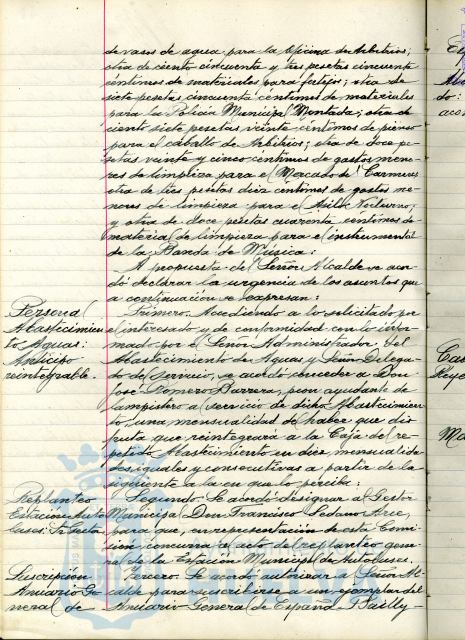 de vasos de agua para la Oficina de Arbitrios;
otra de ciento cincuenta y tres pesetas cincuenta
céntimos de materiales para festejos; otra de
siete pesetas cincuenta céntimos de materiales
para la Policía Municipal Montada; otra de
ciento siete pesetas veinte céntimos de pienso
para el caballo de Arbitrios; otra de doce pe-
setas veinte y cinco céntimos de gastos meno-
res de limpieza para el Mercado del Carmen;
otra de tres pesetas diez céntimos de gastos me-
nores de limpieza para el Asilo Nocturno;
y otra de doce pesetas cuarenta céntimos de
material de limpieza para el instrumental
de la Banda de Música:
A propuesta del Señor Alcalde se acor-
dó declarar la urgencia de los asuntos que
a continuación se expresan:
Personal
Abastecimien
to Aguas:
Anticipo
reintegrable.
Primero. Accediendo a lo solicitado por
el interesado y de conformidad con lo infor-
mado por el Señor Administrador del
Abastecimiento de Aguas y Señor Delega-
do del servicio, se acordó conceder a Don
José Romero Barrera, peon ayudante de
lampistero al servicio de dicho Abastecimien-
to, una mensualidad del haber que dis-
fruta que reintegrará a la Caja del re-
petido Abastecimiento en diez mensualida-
des iguales y consecutivas a partir de la
siguiente a la en que lo perciba:
Replanteo
Estación Auto
buses:
Segundo. Se acordó designar al Gestor
Municipal Don Francisco Sedano Arce,
para que, en representación de esta Comi-
sión concurra al acto del replanteo gene-
ral de la Estación Municipal de Autobuses.
Suscripción
Anuario Ge
neral de
Tercero. Se acordó autorizar al Señor Al-
calde para suscribirse a un ejemplar del
Anuario General de España Bailly-